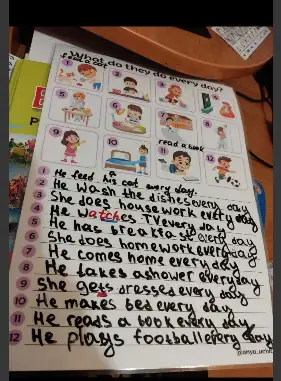 What do they do every day?
feed a cat
1
2
3
4
5
6
7
8
9
10
read a book
11
12
1 He feed his cat every day.
2 He wash the dishes every day
3 She does housework every day
4 He watches TV every day
5 He has breakfast every day
6 She does homework every day
7 He comes home every day
8 He takes a shower every day
9 she gets dressed every day
10 He makes bed every day
11 He reads a book every day
12 He plays football every day